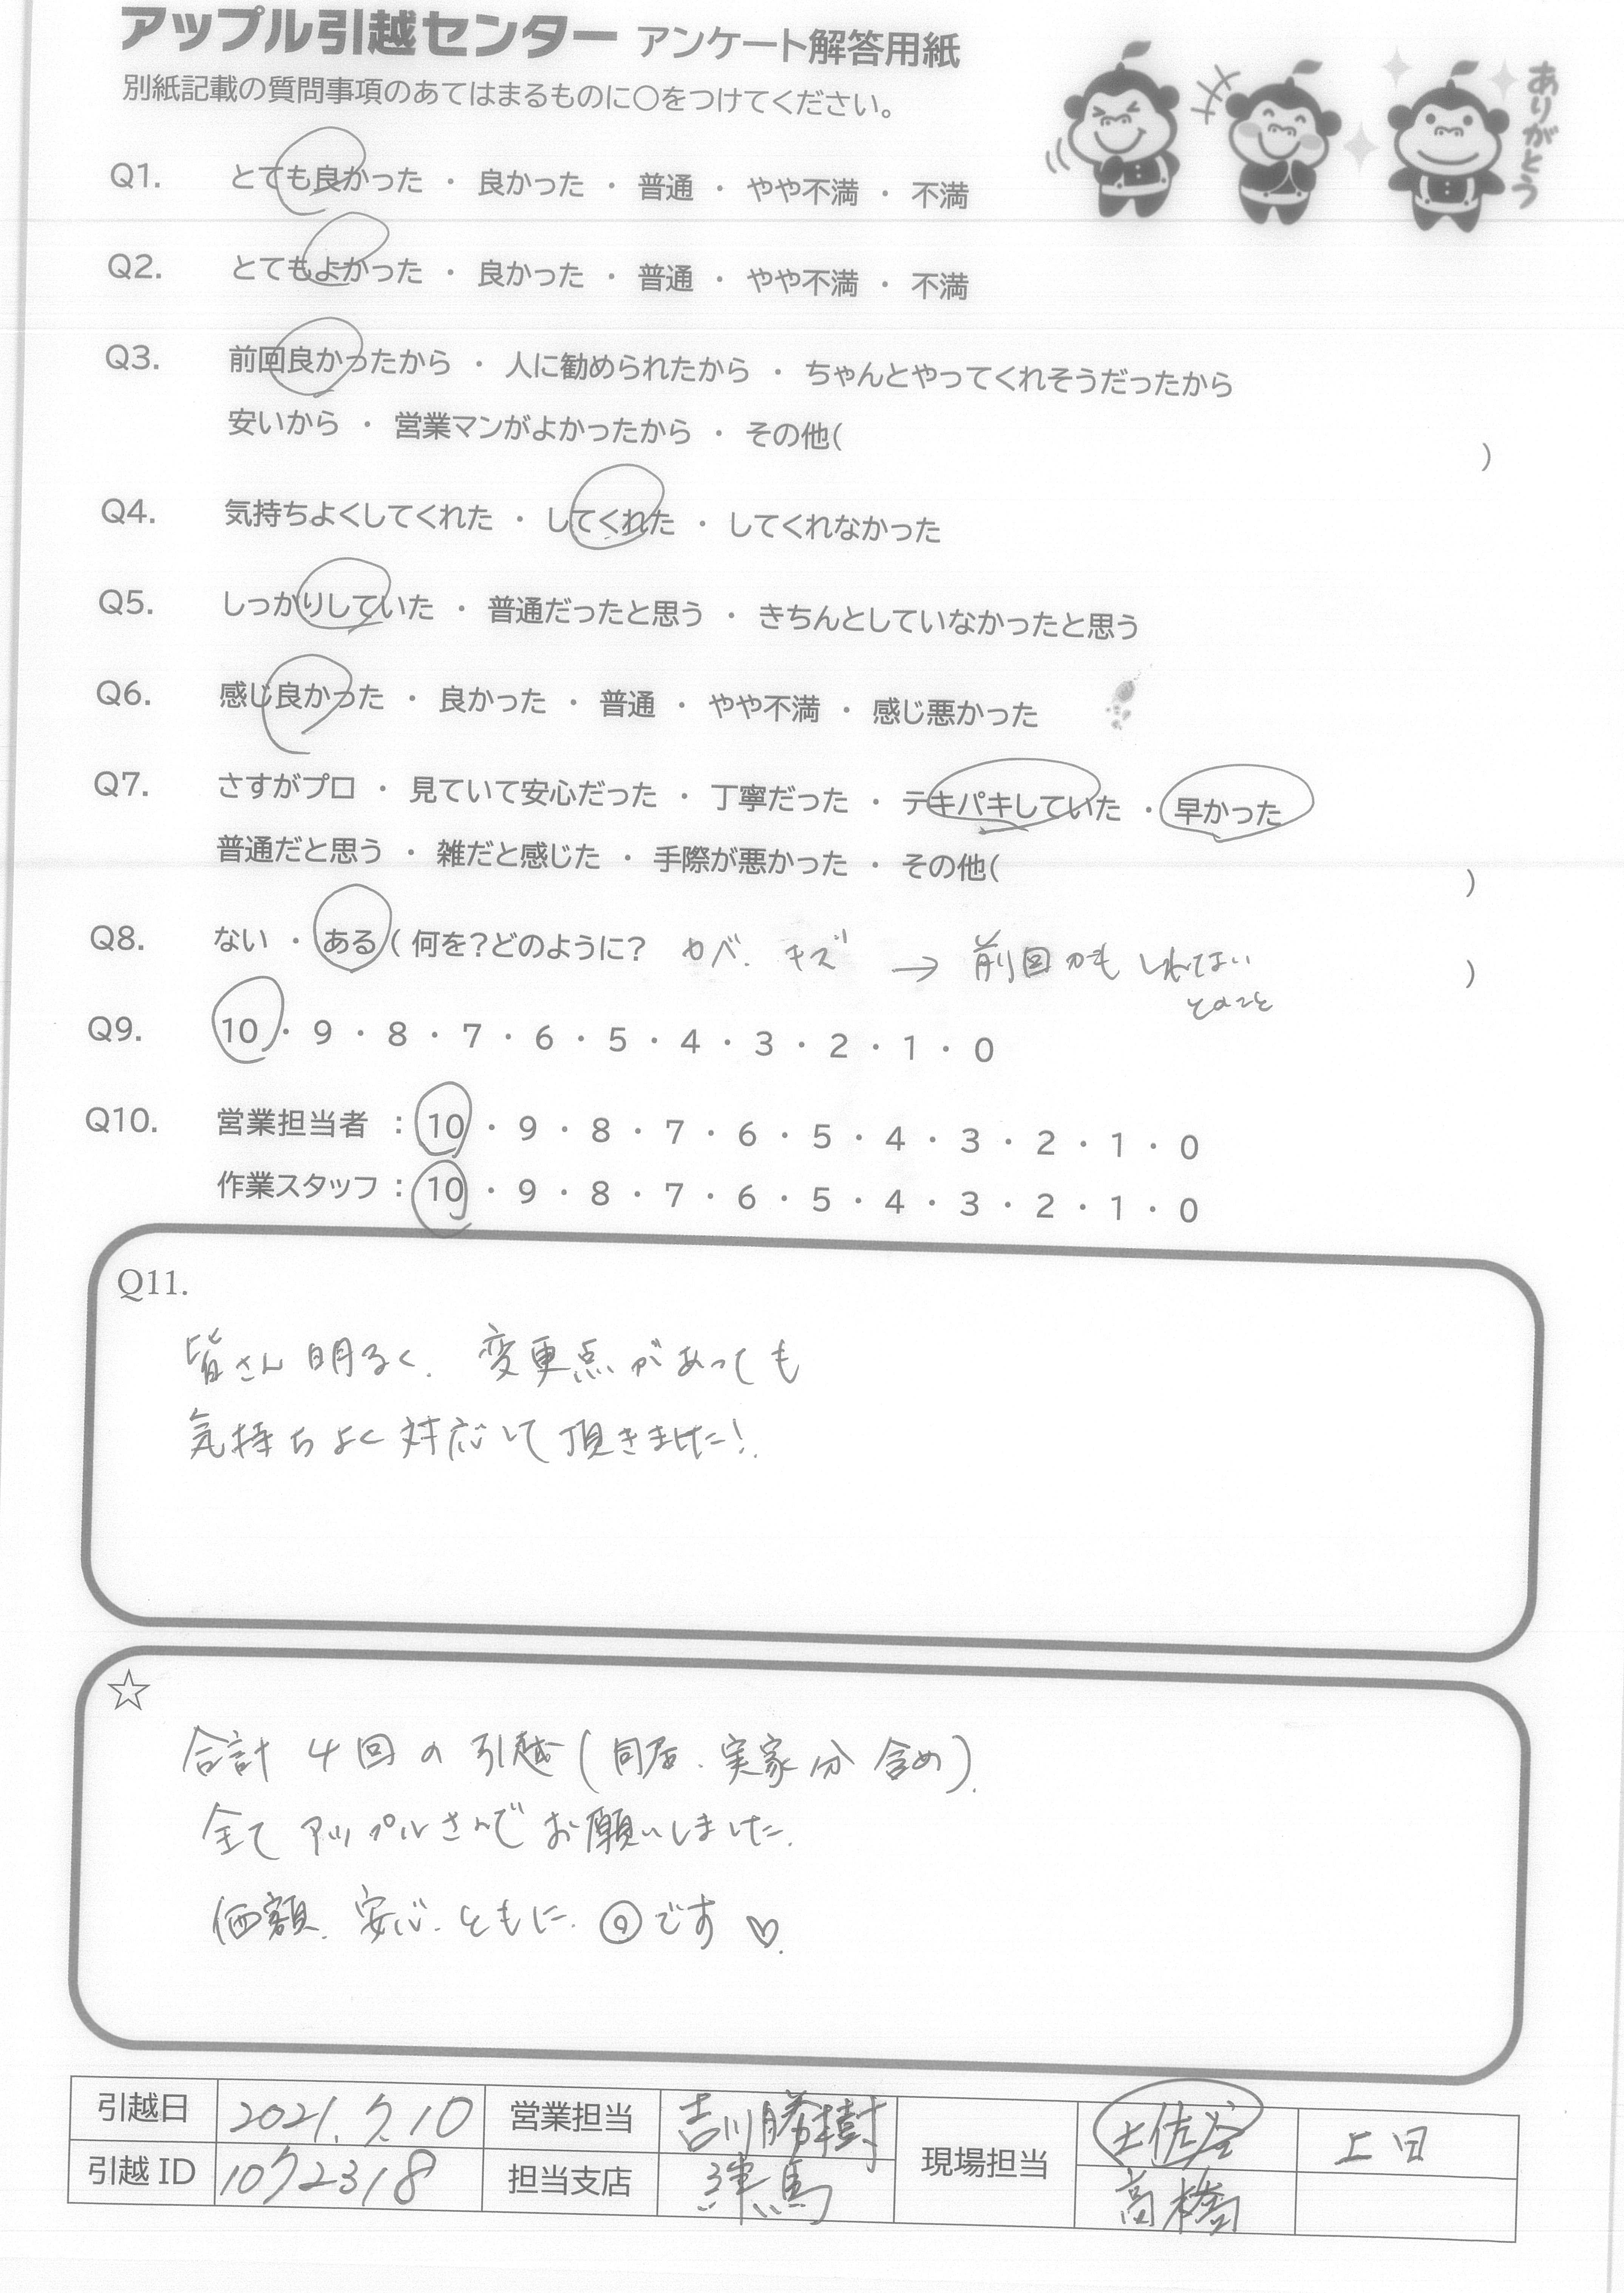 アップル引越センター アンケート解答用紙
別紙記載の質問事項のあてはまるものに〇をつけてください。
ありがとう
Q1. とても良かった ・ 良かった ・ 普通 ・ やや不満 ・ 不満
Q2. とてもよかった ・ 良かった ・ 普通 ・ やや不満 ・ 不満
Q3. 前回良かったから ・ 人に勧められたから ・ ちゃんとやってくれそうだったから
安いから ・ 営業マンがよかったから ・ その他( )
Q4. 気持ちよくしてくれた ・ してくれた ・ してくれなかった
Q5. しっかりしていた ・ 普通だったと思う ・ きちんとしていなかったと思う
Q6. 感じ良かった ・ 良かった ・ 普通 ・ やや不満 ・ 感じ悪かった
Q7. さすがプロ ・ 見ていて安心だった ・ 丁寧だった ・ テキパキしていた ・ 早かった
普通だと思う ・ 雑だと感じた ・ 手際が悪かった ・ その他( )
Q8. ない ・ ある ( 何を?どのように? カベ. キズ → 前回かもしれない )
とのこと
Q9. 10 ・ 9 ・ 8 ・ 7 ・ 6 ・ 5 ・ 4 ・ 3 ・ 2 ・ 1 ・ 0
Q10. 営業担当者 : 10 ・ 9 ・ 8 ・ 7 ・ 6 ・ 5 ・ 4 ・ 3 ・ 2 ・ 1 ・ 0
作業スタッフ : 10 ・ 9 ・ 8 ・ 7 ・ 6 ・ 5 ・ 4 ・ 3 ・ 2 ・ 1 ・ 0
Q11.
皆さん明るく. 変更点があっても
気持ちよく対応して頂きました!.
☆
合計 4回の引越(同居.実家分含め).
全てアップルさんでお願いしました.
価額. 安心.ともに.◎です♡.
引越日 2021.7.10 営業担当 吉川勝樹 現場担当 土佐谷 上日
引越 ID 1072318 担当支店 練馬 高橋